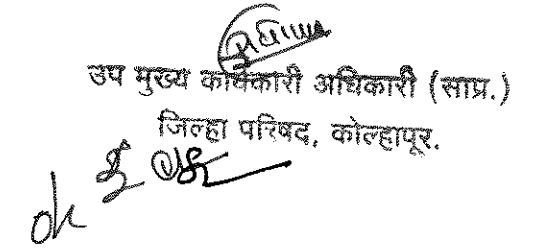 उप मुख्य कार्यकारी अधिकारी (साप्र.)
जिल्हा परिषद, कोल्हापूर.
ok